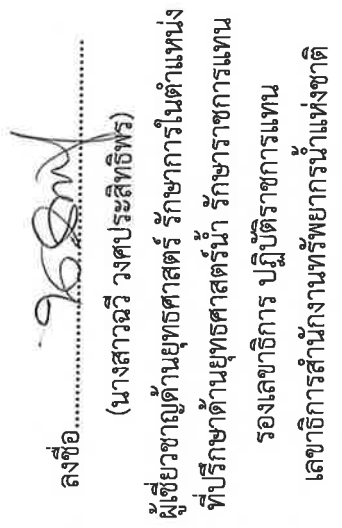 ลงชื่อ
(นางสาวฉวี วงศประสิทธิพร)
ผู้เชี่ยวชาญด้านยุทธศาสตร์ รักษาการในตำแหน่ง
ที่ปรึกษาด้านยุทธศาสตร์น้ำ รักษาราชการแทน
รองเลขาธิการ ปฏิบัติราชการแทน
เลขาธิการสำนักงานทรัพยากรน้ำแห่งชาติ